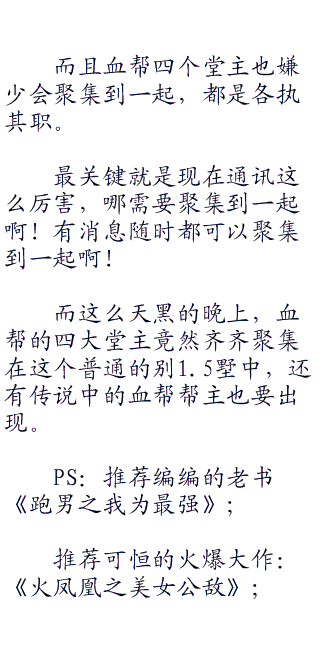 而且血帮四个堂主也嫌
少会聚集到一起，都是各执
其职。
最关键就是现在通讯这
么厉害，哪需要聚集到一起
啊！有消息随时都可以聚集
到一起啊！
而这么天黑的晚上，血
帮的四大堂主竟然齐齐聚集
在这个普通的别1.5墅中，还
有传说中的血帮帮主也要出
现。
PS：推荐编编的老书
《跑男之我为最强》；
推荐可恒的火爆大作：
《火凤凰之美女公敌》；